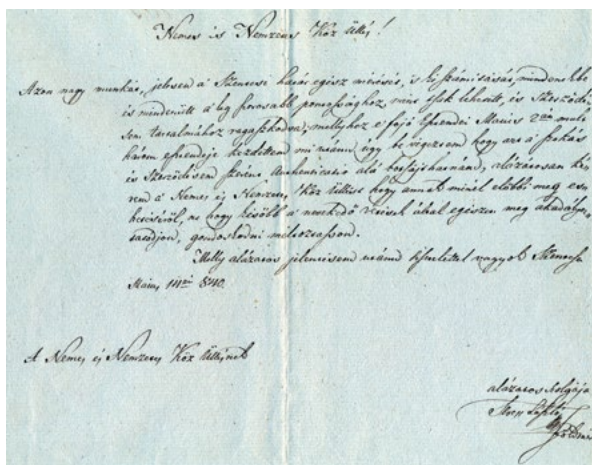 Nemes és Nemzetes Köz Ülés!
Azon nagy munkát, jelesen a Szentesi határ egész mérését, is ki számitását, minden ekbe
és mindenütt a leg pontosabb pontossághoz, mint csak lehetett, és Szerződé-
sem tartalmához ragaszkodva, mellyhez e folyó Esztendei Martius 2án mult
három esztendeje kezdettem mi után úgy be végeztem hogy azt a
és Szerződésem szerént Authenticatio alá botsájthatnám, alázatosan ké-
rem a Nemes és Nemzetes Köz Üllést hogy annak minél előbbi meg esz-
közléséről, ne hogy később a vetések által egészen meg akadályoz-
tasodjon, gondoskodni méltóztasson.
Melly alázatos jelentésem után tisztelettel vagyok Szentesen
Május 840.
A Nemes és Nemzetes Köz Ülésnek
alázatos szolgája